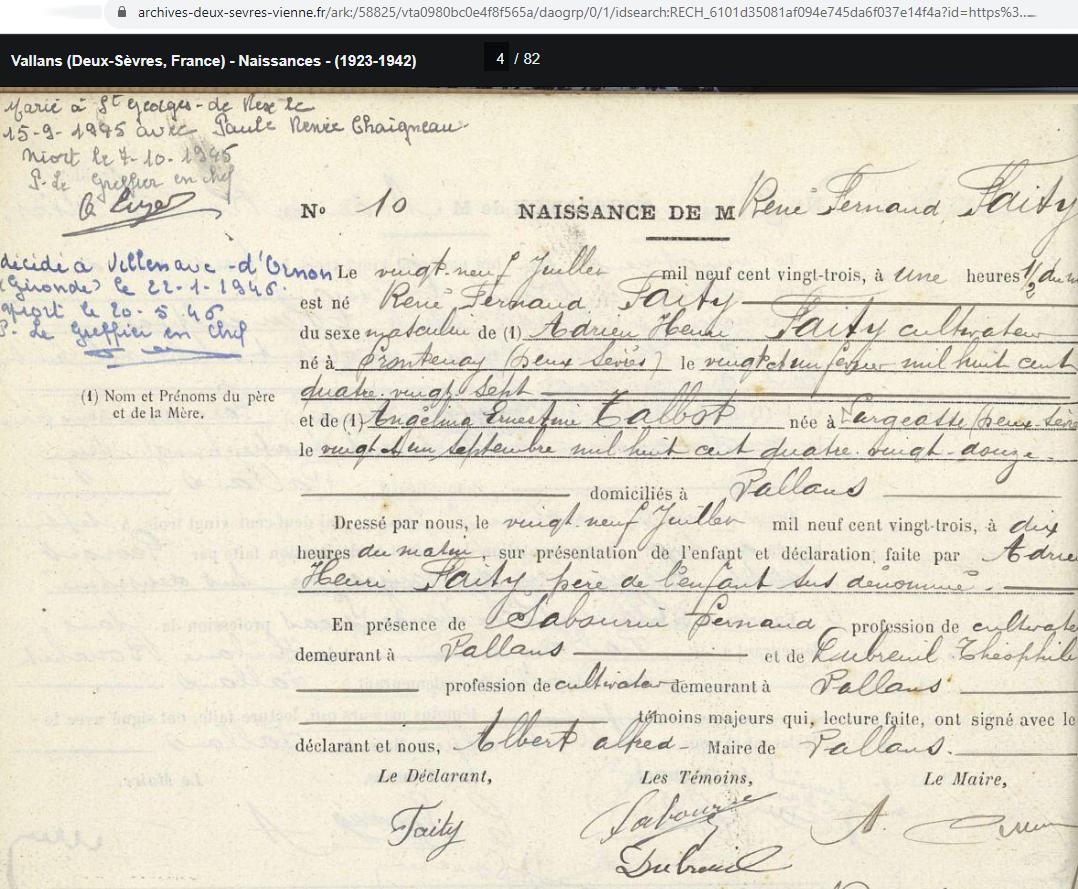 archives-deux-sevres-vienne.fr/ark:/58825/vta0980bc0e4f8f565a/daogrp/0/1/idsearch:RECH_6101d35081af094e745da6f037e14f4a?id=https%3...
Vallans (Deux-Sèvres, France) - Naissances - (1923-1942) 4 / 82
Marié à St Georges-de Rex le
15-9-1945 avec Paule Renée Chaigneau
Niort le 7-10-1945
P. Le Greffier en chef
N° 10 NAISSANCE DE M René Fernand Faity
décédé à Villenave-d'Ornon
(Gironde) le 22-1-1946.
Niort le 20-5-46
P. Le Greffier en Chef
Le vingt-neuf Juillet mil neuf cent vingt-trois, à une heures 1/2 du m
est né René Fernand Faity
du sexe masculin de (1) Adrien Henri Faity cultivateur
né à Frontenay (Deux Sèvres) le vingt et un février mil huit cent
quatre vingt sept
(1) Nom et Prénoms du père
et de la Mère.
et de (1) Angélina Ernestine Talbot née à Largeasse (Deux-Sèvres
le vingt et un septembre mil huit cent quatre-vingt-douze
domiciliés à Vallans
Dressé par nous, le vingt neuf Juillet mil neuf cent vingt-trois, à dix
heures du matin sur présentation de l'enfant et déclaration faite par Adrie
Henri Faity père de l'enfant sus dénommé.
En présence de Sabourin Fernand profession de cultivate
demeurant à Vallans et de Dubreuil Théophile
profession de cultivateur demeurant à Vallans
témoins majeurs qui, lecture faite, ont signé avec le
déclarant et nous, Albert alfred Maire de Vallans.
Le Déclarant, Les Témoins, Le Maire,
Faity Sabourin A.
Dubreuil